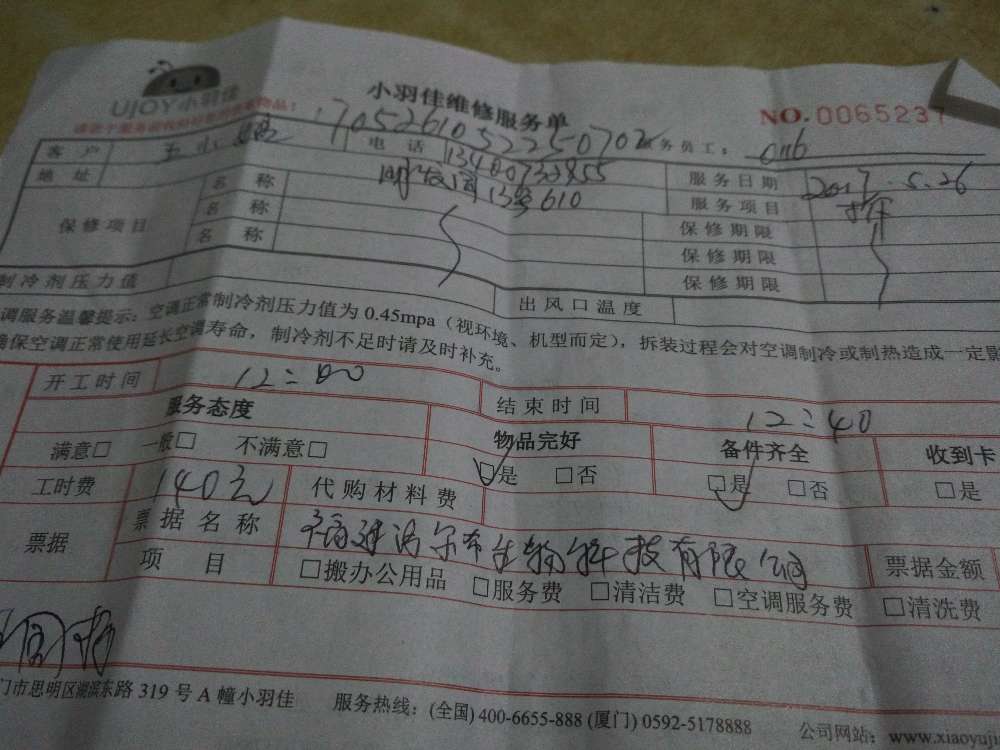 UJOY小羽佳
小羽佳维修服务单
NO.0065237
170526105225-0702
客户 电话 服务员工: 046
地址 服务日期 2017.5.26
13号610
保修项目 名称 服务项目
名称 保修期限
名称 保修期限
保修期限
制冷剂压力值 出风口温度
调服务温馨提示:空调正常制冷剂压力值为0.45mpa(视环境、机型而定),拆装过程会对空调制冷或制热造成一定影
确保空调正常使用延长空调寿命,制冷剂不足时请及时补充。
开工时间 12:00 结束时间 12:40
服务态度 物品完好 备件齐全 收到卡
满意□ 一般□ 不满意□ □是 □否 □是 □否 □是
工时费 140元 代购材料费
票据 票据名称 福建沃尔布生物科技有限公司 票据金额
项目 □搬办公用品 □服务费 □清洁费 □空调服务费 □清洗费
门市思明区湖滨东路319号A幢小羽佳 服务热线:(全国)400-6655-888 (厦门)0592-5178888 公司网站:www.xiaoyuji